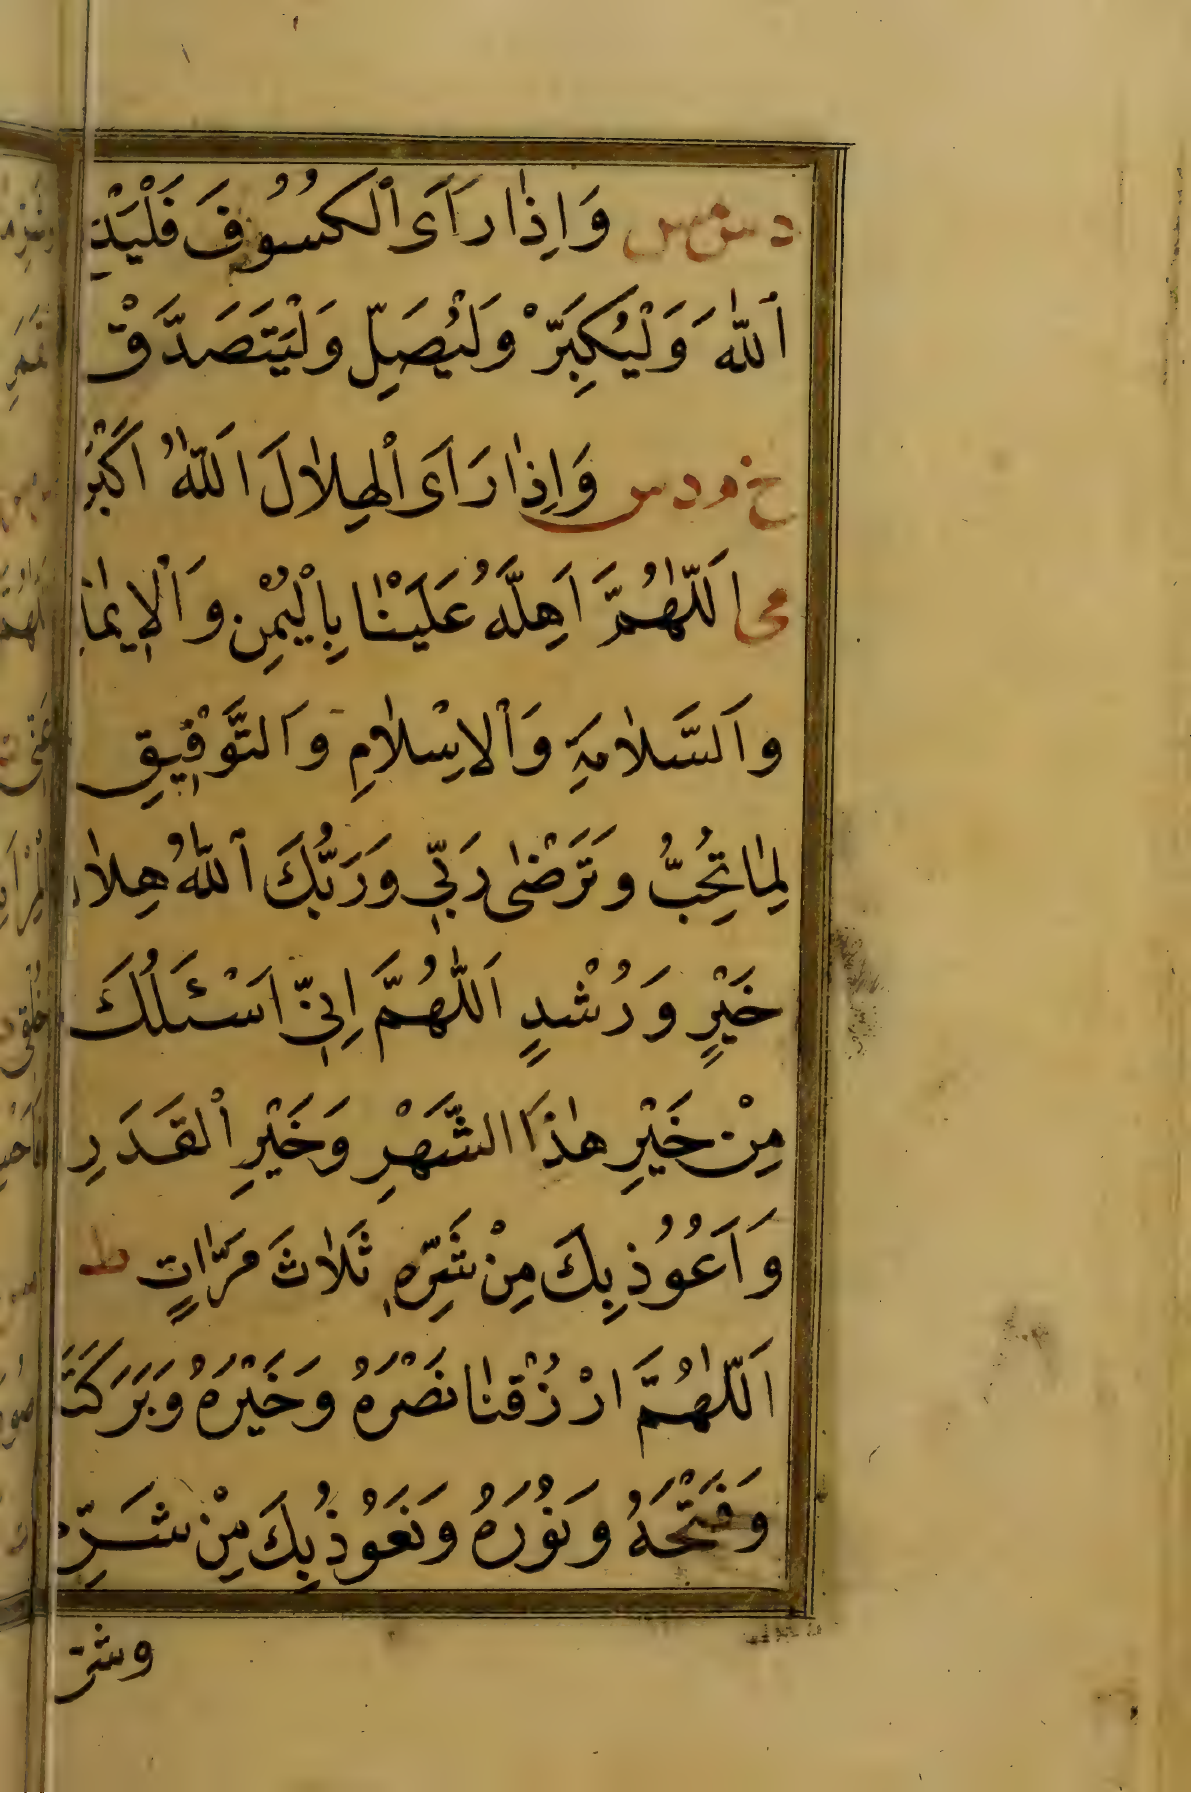 د مس س وَاِذٰا رَاَى اَلْكُسُوُفَ فَلْيَدْ
اَللّٰهَ وَلْيُكَبِّرْ وَلْيُصَلِّ وَلْيَتَصَدَّقْ
خ م د س وَاِذٰا رَاَى اَلْهِلاٰلَ اَللّٰهُ اَكْبَرُ
مى اَللّٰهُمَّ اَهِلَّهُ عَلَيْنٰا بِالْيُمْنِ وَاَلْاِيمٰا
وَاَلسَّلاٰمَةِ وَاَلْاِسْلاٰمِ وَاَلتَّوْفِيقِ
لِمٰا تُحِبُّ وَتَرْضٰى رَبِّي وَرَبُّكَ اَللّٰهُ هِلاٰل
خَيْرٍ وَرُشْدٍ اَللّٰهُمَّ اِنِّي اَسْئَلُكَ
مِنْ خَيْرِ هٰذَا الشَّهْرِ وَخَيْرِ اَلْقَدَرِ
وَاَعُوُذُ بِكَ مِنْ شَرِّهِ ثَلاٰثَ مَرّٰاتٍ ط
اَللّٰهُمَّ ارْزُقْنٰا نَصْرَهُ وَخَيْرَهُ وَبَرَكَتَ
وَفَتْحَهُ وَنُوُرَهُ وَنَعُوُذُ بِكَ مِنْ شَرِّه
وشر